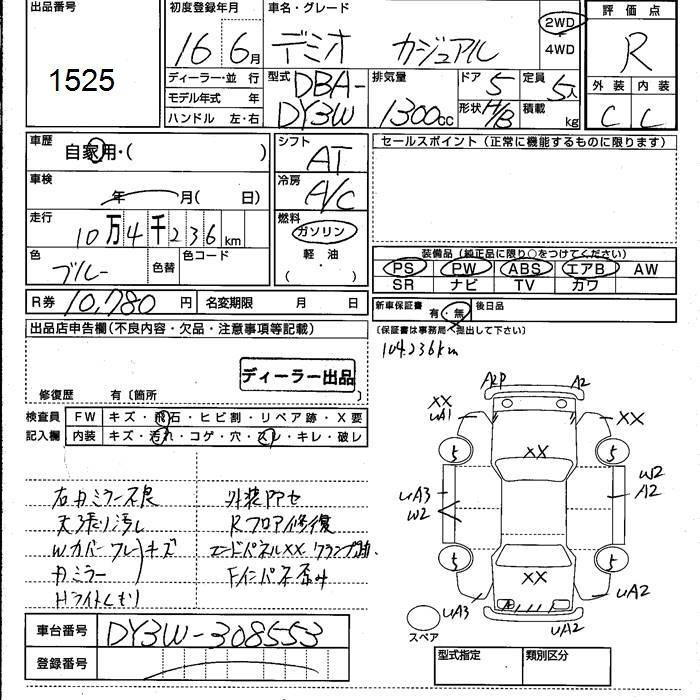 出品番号
1525
初度登録年月
16 6月
車名・グレード
デミオ カジュアル
2WD
4WD
評価点
R
外装 内装
C C
ディーラー・並行
モデル年式 年
ハンドル 左・右
型式
DBA-
DY3W
排気量
1300cc
ドア 5
形状 H/B
定員 5人
積載 kg
車歴
自家用・( )
車検
年 月( 日)
走行
10万4千236km
色
ブルー
色替
色コード
シフト
AT
冷房
A/C
燃料
ガソリン
軽・油
( )
セールスポイント(正常に機能するものに限ります)
装備品(純正品に限り○をつけてください)
PS PW ABS エアB AW
SR ナビ TV カワ
R券 10,780円
名変期限 月 日
新車保証書 有・無
後日品
(保証書は事務局へ提出して下さい)
104,236km
出品店申告欄(不良内容・欠品・注意事項等記載)
ディーラー出品
修復歴 有〔箇所
検査員
記入欄
FW キズ・飛石・ヒビ割・リペア跡・X要
内装 キズ・汚れ・コゲ・穴・スレ・キレ・破レ
右カミラー不良
天張り汚れ
Wカバー
キズ
カミラー
Hライトくもり
Rフロア修復
エンドパネルXX
Fインパネ歪み
A2P A2
XX
uA1
XX
5 5
XX
uA3
W2
W2
A2
5 5
XX
uA3
uA2
uA2
スペア
車台番号 DY3W-308553
登録番号
型式指定 類別区分